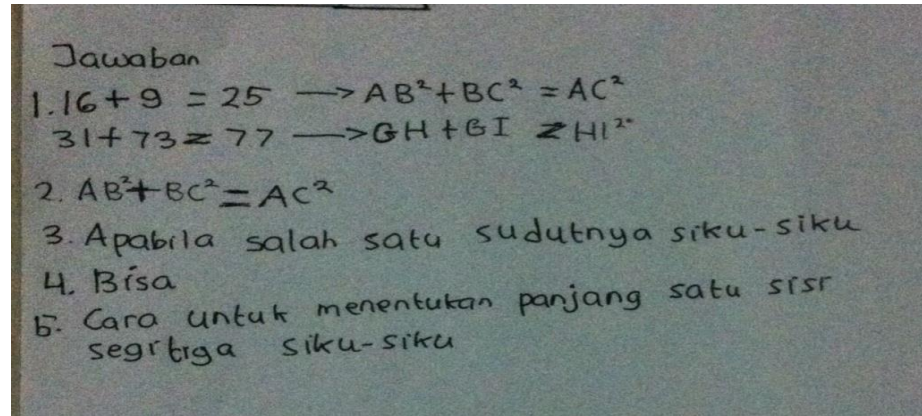 Jawaban
1. 16 + 9 = 25 → AB² + BC² = AC²
31 + 73 ≠ 77 → GH + GI ≠ HI²
2. AB² + BC² = AC²
3. Apabila salah satu sudutnya siku-siku
4. Bisa
5. Cara untuk menentukan panjang satu sisi
segitiga siku-siku